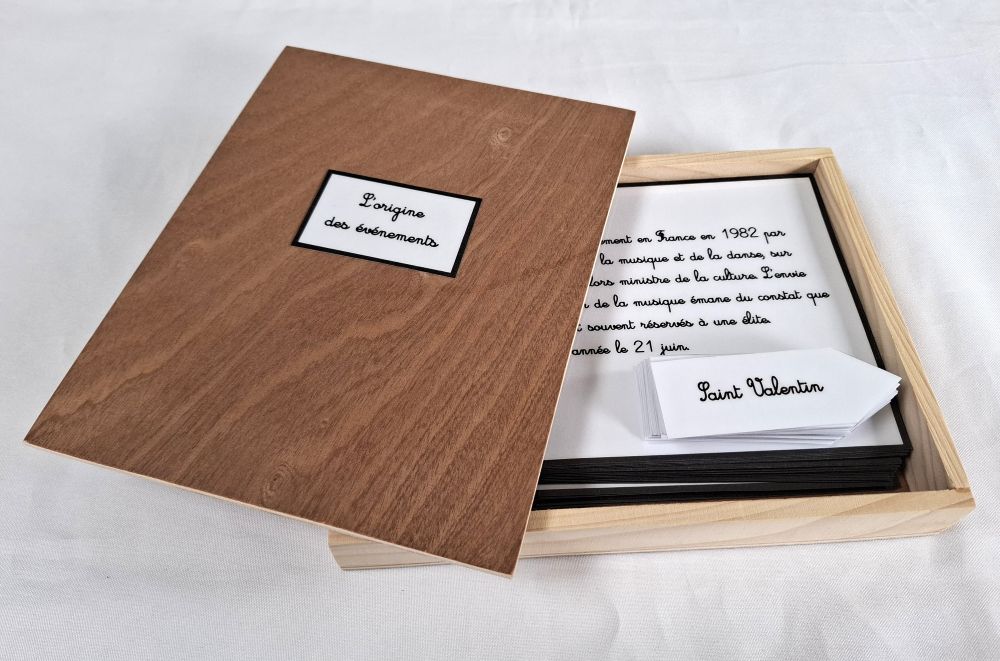 L'origine
des événements
en France en 1982 par
la musique et de la danse, sur
ministre de la culture. L'envie
de la musique émane du constat que
souvent réservés à une élite.
année le 21 juin.
Saint Valentin